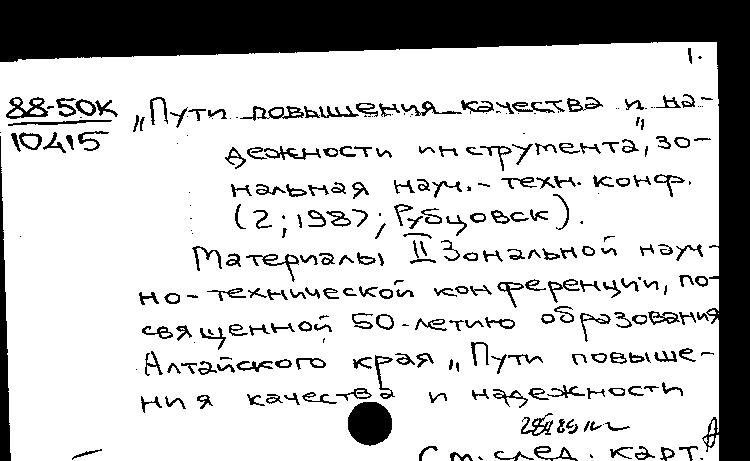 1.
88-50К
10415
„Пути повышения качества и на-
дежности инструмента", зо-
нальная науч.-техн. конф.
(2; 1987; Рубцовск).
Материалы II Зональной науч-
но-технической конференции, по-
священной 50-летию образования
Алтайского края „Пути повыше-
ния качества и надежности
См. след. карт.